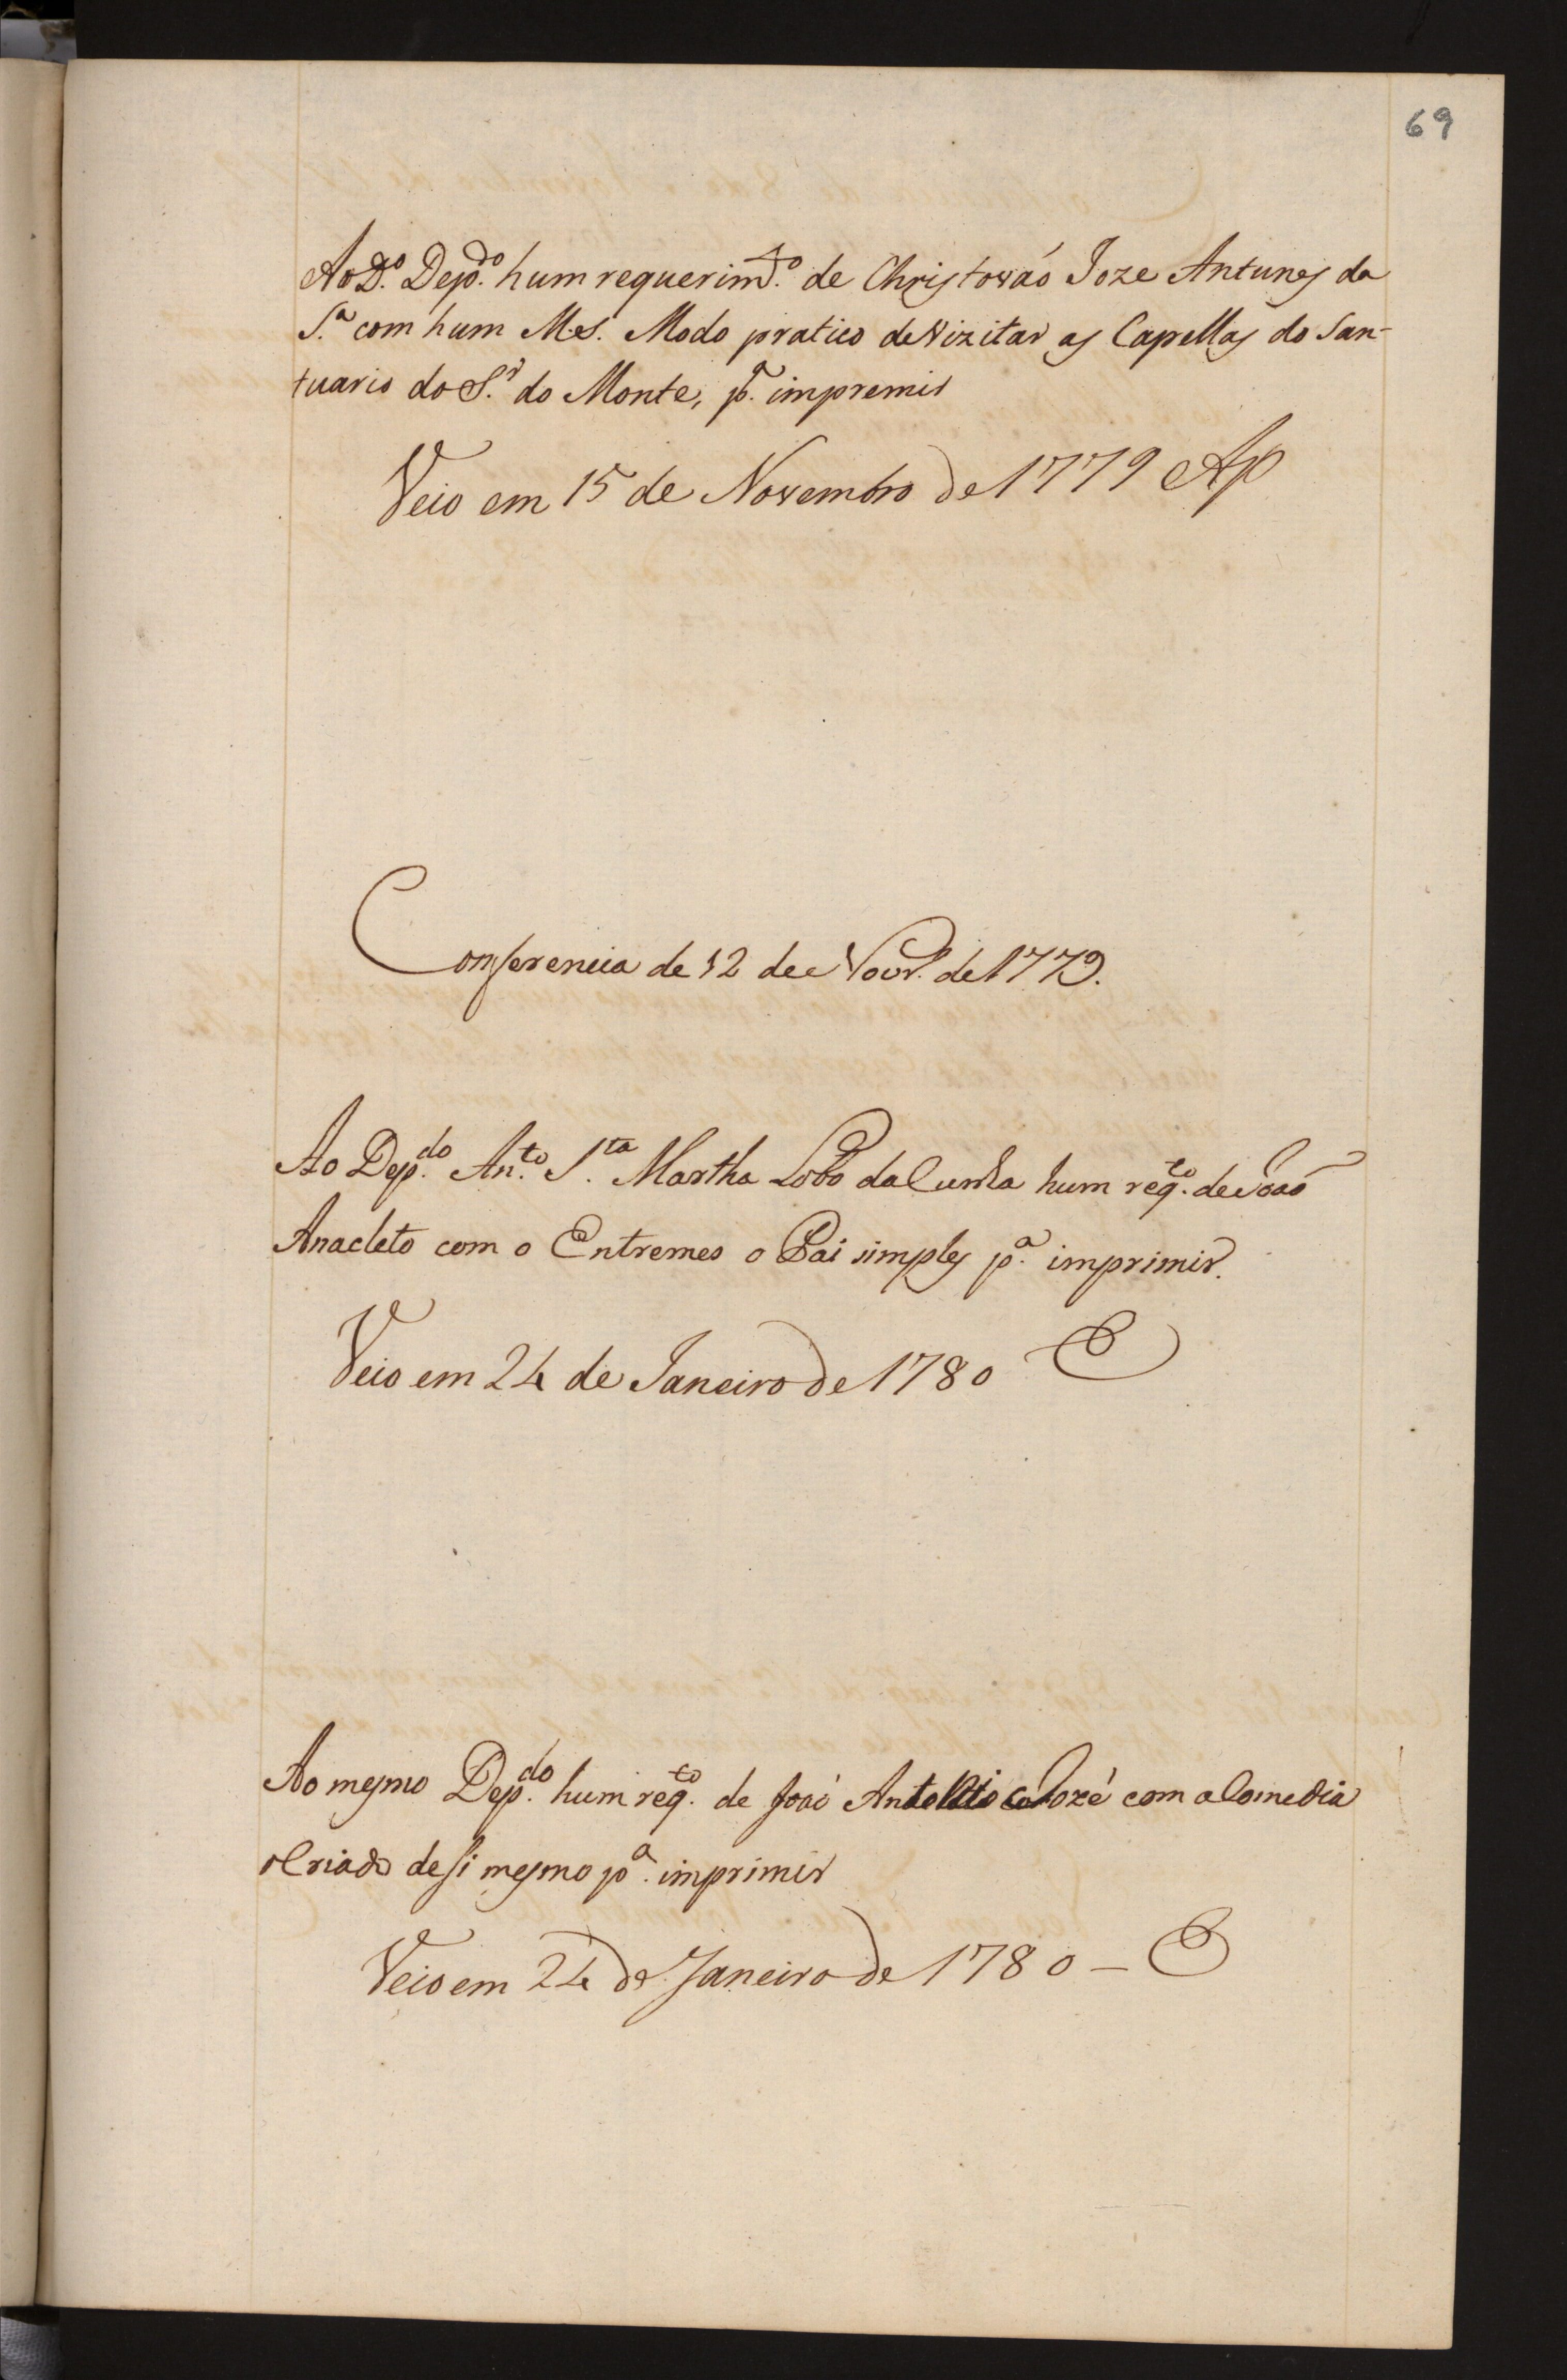 69
Ao D.º Dep.do hum requerim.to de Christovaó Joze Antunes da
S.ª com hum M.S. Modo pratico de Vizitar as Capellas do San-
tuario do S.r do Monte, p.ª impremir
Veio em 15 de Novembro de 1779 Ap
Conferencia de 12 de Novr.º de 1779.
Ao Dep.do An.to S.ta Martha Lobo da Cunha hum req.to de Joaõ
Anacleto com o Entremes o Pai simples p.ª imprimir.
Veio em 24 de Janeiro de 1780
Ao mesmo Dep.do hum req.to de Joaó Jozé com a Comedia
o Criado de si mesmo p.ª imprimir
Veio em 24 de Janeiro de 1780 –